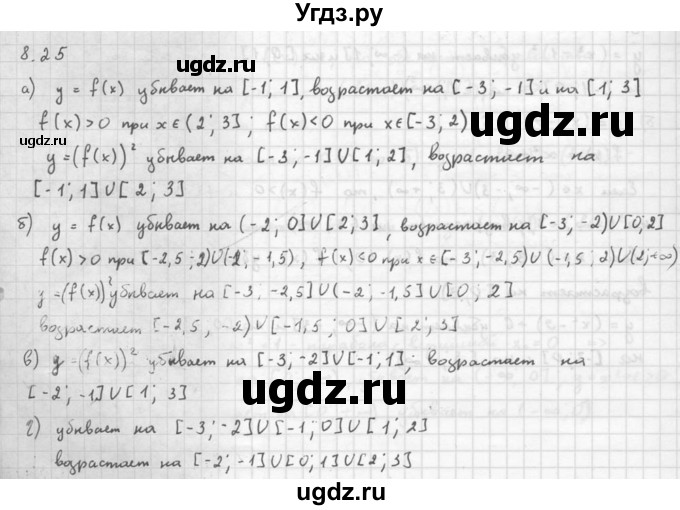 Угдз.ру
8.25
а) y = f(x) убывает на [-1; 1], возрастает на [-3; -1] и на [1; 3]
f(x)>0 при x∈(2; 3] ; f(x)<0 при x∈[-3; 2)
y=(f(x))² убывает на [-3; -1]∪[1; 2], возрастает на
[-1; 1]∪[2; 3]
б) y = f(x) убывает на (-2; 0]∪[2; 3], возрастает на [-3; -2)∪[0; 2]
f(x)>0 при [-2,5; -2)∪(-2; -1,5), f(x)<0 при x∈[-3; -2,5)∪(-1,5; 2)∪(2; +∞)
y=(f(x))² убывает на [-3; -2,5]∪(-2; -1,5]∪[0; 2]
возрастает [-2,5; -2)∪[-1,5; 0]∪[2; 3]
в) y=(f(x))² убывает на [-3; -2]∪[-1; 1]; возрастает на
[-2; -1]∪[1; 3]
г) убывает на [-3; -2]∪[-1; 0]∪[1; 2]
возрастает на [-2; -1]∪[0; 1]∪[2; 3]
ugdz.ru
ugdz.ru
ugdz.ru
ugdz.ru
ugdz.ru
ugdz.ru
ugdz.ru
ugdz.ru
ugdz.ru
ugdz.ru
ugdz.ru